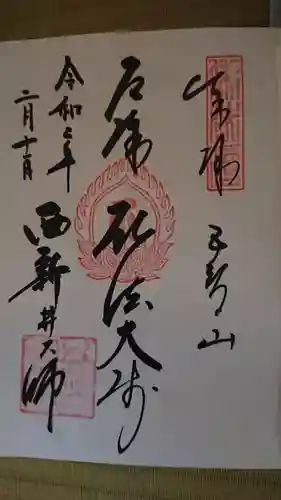 奉拝 五智山
厄除 弘法大師
令和二年
二月十一日
西新井大師